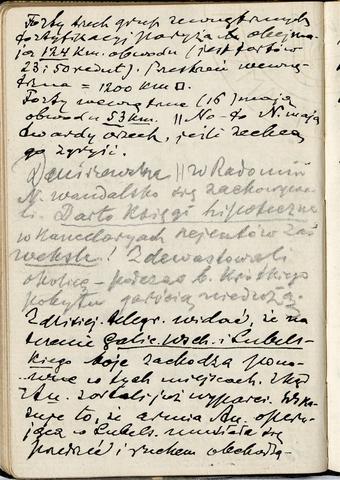 Forty trzech grup zewnętrznych
fortyfikacji Paryża obejmu-
ją 124 km. obwodu (jest fortów
23 i 50 redut). Przestrzeń wewnę-
trzna = 1200 km □.
Forty wewnętrzne (16) mają
obwodu 53 km. || No - to N. mają
twardy orzech, jeśli zechcą
go zgryźć.
|| w Radomiu
N. wandalsko się zachowywa-
li. Darto księgi hipoteczne
w kancelaryach rejentów zaś
weksle! Zdewastowali
okolicę - podczas b. krótkiego
pobytu
Z dzisiej. telegr. widać, że na
terenie Galic. wsch. i Lubels-
kiego boje zachodzą pono-
wne w tych miejscach. Skąd
An. zostali już wyparci. Wska-
zuje to, że armia An. operu-
jąca w Lubels. musiała się
i ruchem obchodzą-